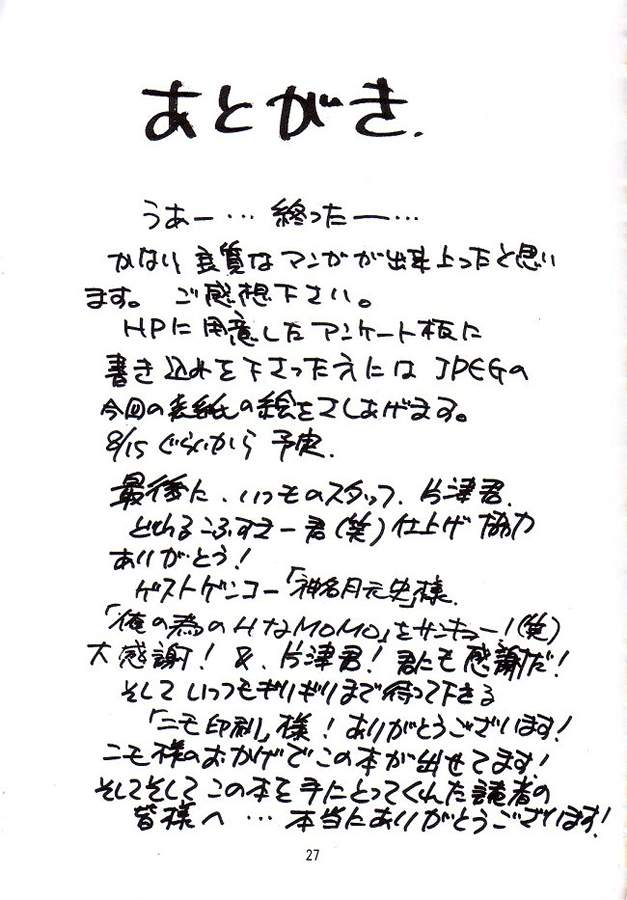 あとがき.
うあー… 終ったー…
かない 良質なマンガが出来上ったと思い
ます。ご感想下さい。
HPに用意したアンケート板に
書き込めを下さったえには JPEGの
今回の表紙の絵をさしあげます。
8/15ぐらいから 予定.
最後に、いつものスタッフ、片津君.
どれる こふすえー君(笑) 仕上げ 協力
ありがとう!
ゲストゲンコー「神名月元史」様.
「俺の為のHなMOMO」をサンキュー!(笑)
大感謝! &、片津君! 君にも感謝だ!
そして いつもギリギリまで待って下さる
「ニモ印刷」様! ありがとうございます!
ニモ様のおかげでこの本が出せてます!
そしてそして この本を手にとってくれた読者の
皆様へ … 本当にありがとうございます!
27